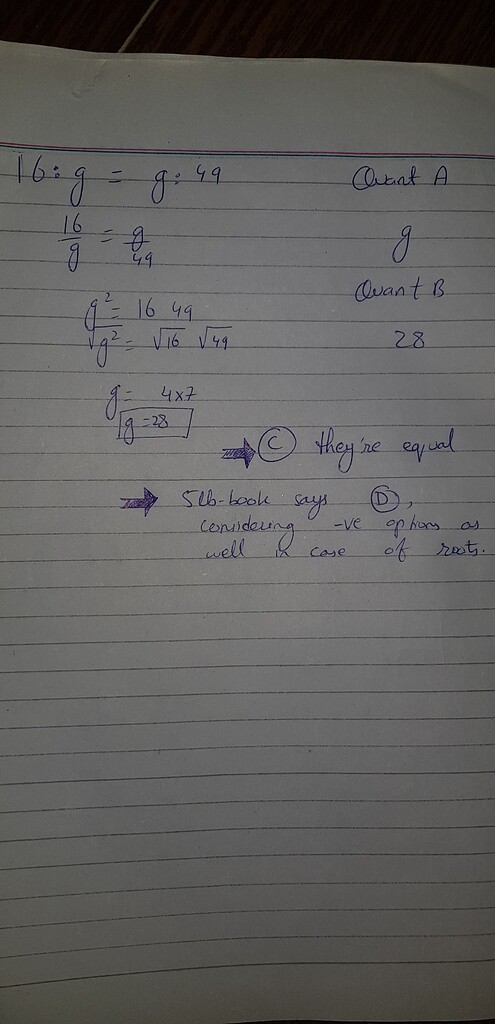 16 : g = g : 49
Quant A
16/g = g/49
g
Quant B
g² = 16 49
√g² = √16 √49
28
g = 4×7
g = 28
C they're equal
5lb-book says D,
considering -ve options as
well in case of roots.